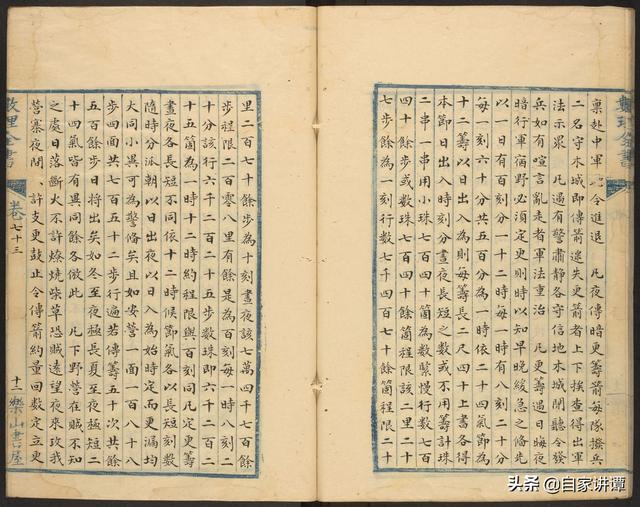 稟赴中軍 令進退 凡夜傳暗更籌箭每隊撥兵
二名守木城即傳箭遞失更箭者上下挨查得出軍
法示眾 凡遇有警肅靜各守信地木城閉聽令發
兵如有喧言亂走者軍法重治 凡更籌遇日晦夜
暗行軍宿野必須定更則時以知早晚緩急之備先
以一日有百刻分一十二時每時有八刻二十分
每一刻六十分共五百分為一時依二十四氣節為
本節日出入時刻分晝夜長短之數或不用籌計珠
十二籌以日出入為則每籌長二尺四十上書各得
二串一串用小珠七百四十箇為數緊慢行數七百
四十餘步或數珠七百四十箇程限該二里二十
七步餘為一刻行數七千四百七十餘箇程限二十
里二百七十餘步為十刻晝夜該七萬四千七百餘
步程限二百零八里有餘是為百刻每一時八刻二
十分該行六千二百二十五步數珠即六千二百二
十五箇為一時十二時約程限與百刻同凡定更籌
晝夜各長短不同依十二時候節氣各以長短刻數
隨時分派朝以日出夜以日入為始時定而更漏均
大同小異可為警備矣且如安營一面一百八十八
步四面共七百五十二步行遍若傳籌五十次共餘
五百餘步日將出矣如冬至夜極長夏至夜極短二
十四氣皆有異同餘各倣此 凡下野營在賊不知
之處日落斷火不許燎燒柴草恐賊遠望夜來攻我
營寨夜閒、許支更鼓止令傳箭約量回數定立更
數理全書
卷七十三
十二
樂山書屋
數理全書
头条 @自家讲谭